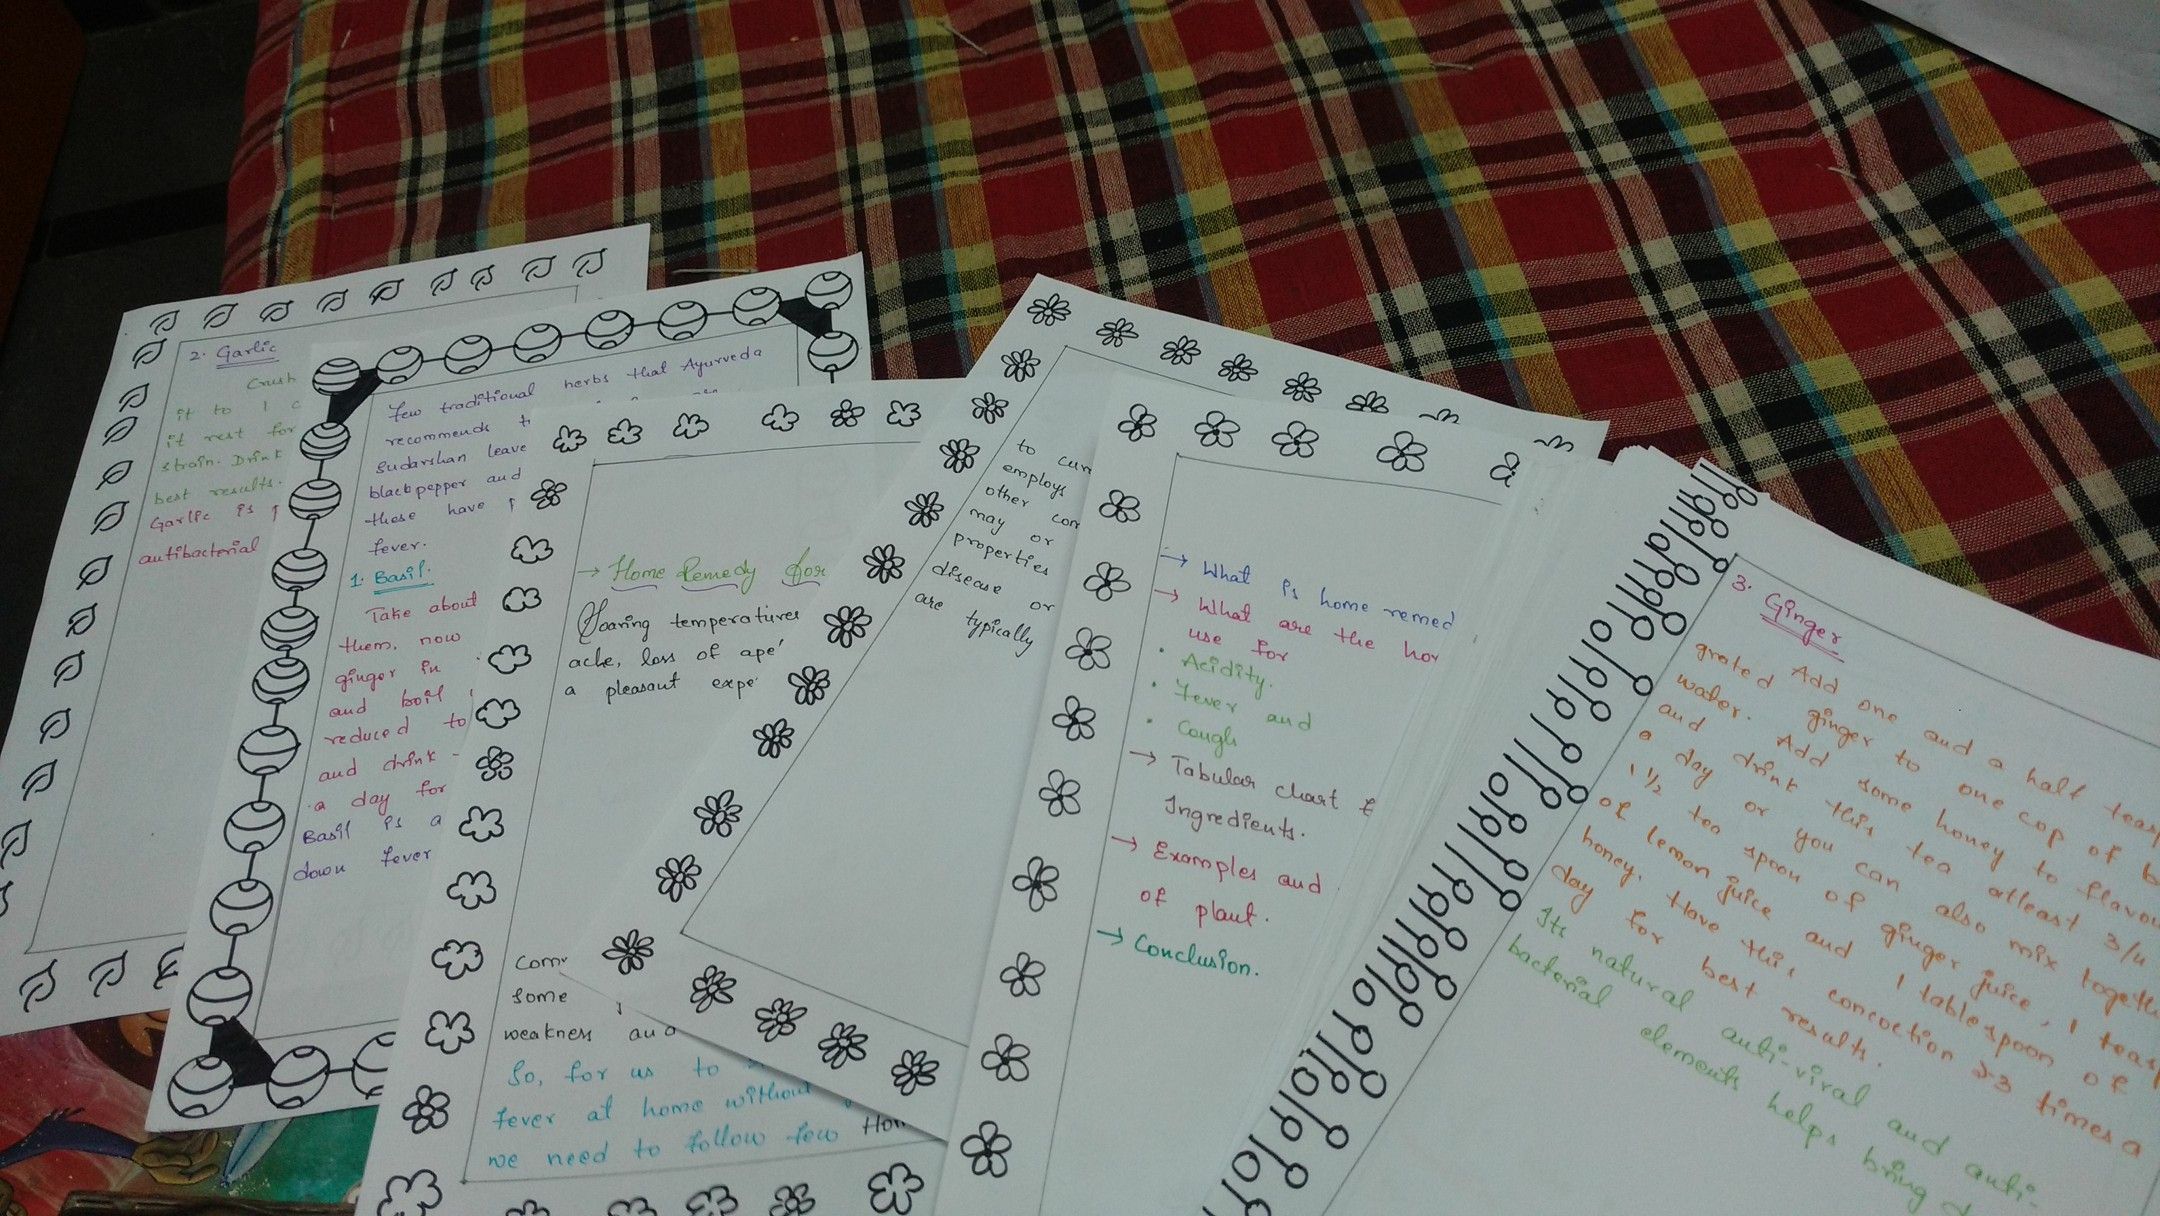 2. Garlic
Crush
it to 1 c
it rest for
strain. Drink
best results.
Garlic is
antibacterial
Few traditional herbs that Ayurveda
recommends
sudarshan leave
blackpepper and
these have
fever.
1. Basil:
Take about
them, now
ginger in
and boil
reduced to
and drink
a day for
Basil is a
down fever
→ Home Remedy for
Soaring temperatures
ache, loss of ape
a pleasant expe
Com
some
weakness and
So, for us to
fever at home without
we need to follow few How
to cur
employs
other con
may or
properties
disease or
are typically
→ What is home remed
→ What are the hom
use for
• Acidity.
• Fever and
• Cough
→ Tabular chart
Ingredients.
→ Examples and
of plant.
→ Conclusion.
3. Ginger
Add one and a half teasp
grated ginger to one cop of b
water. Add some honey to flavou
and drink this tea atleast 3/4
a day or you can also mix togeth
1 1/2 tea spoon of ginger juice, 1 teasp
of lemon juice and 1 tablespoon of
honey. Have this concoction 2-3 times a
day for best results.
Its natural anti-viral and anti-
bacterial elements helps bring d